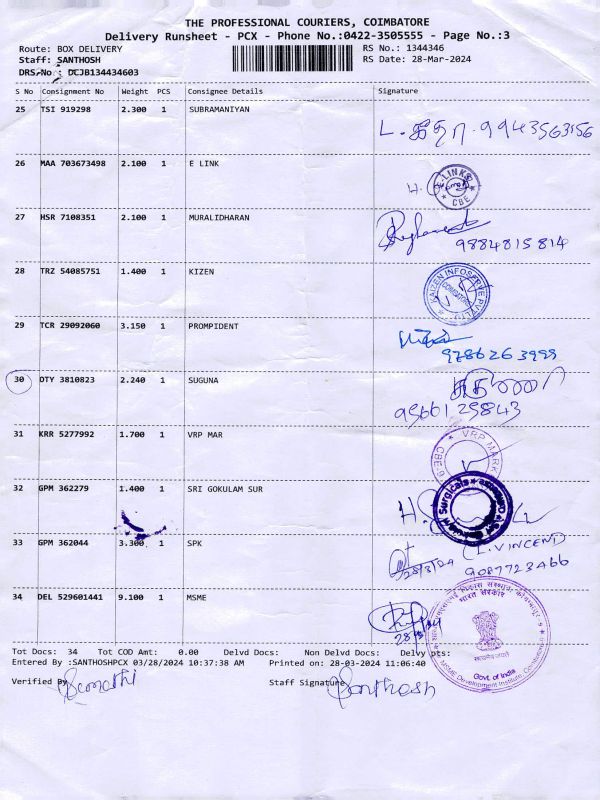 THE PROFESSIONAL COURIERS, COIMBATORE
Delivery Runsheet - PCX - Phone No.:0422-3505555 - Page No.:3
Route: BOX DELIVERY
RS No.: 1344346
Staff: SANTHOSH
RS Date: 28-Mar-2024
DRS No: DCJB134434603
S No Consignment No Weight PCS Consignee Details Signature
25 TSI 919298 2.300 1 SUBRAMANIYAN
L. 9943563156
26 MAA 703673498 2.100 1 E LINK
H. E-LINKS CBE
27 HSR 7108351 2.100 1 MURALIDHARAN
9884815814
28 TRZ 54085751 1.400 1 KIZEN
KAIZEN INFOSERVE PVT LTD COIMBATORE
29 TCR 29092060 3.150 1 PROMPIDENT
9786263999
30 DTY 3810823 2.240 1 SUGUNA
9566125843
31 KRR 5277992 1.700 1 VRP MAR
VRP MARK CBE-9
32 GPM 362279 1.400 1 SRI GOKULAM SUR
H. Surgicals
33 GPM 362044 3.300 1 SPK
28/3/24 (L.VINCENT)
9087723466
34 DEL 529601441 9.100 1 MSME
भारत सरकार
सत्यमेव जयते
Govt. of India
MSME Development Institute, Coimbatore
Tot Docs: 34 Tot COD Amt: 0.00 Delvd Docs: Non Delvd Docs: Delvy pts:
Entered By :SANTHOSHPCX 03/28/2024 10:37:38 AM Printed on: 28-03-2024 11:06:40
Verified By
Staff Signature Santhosh